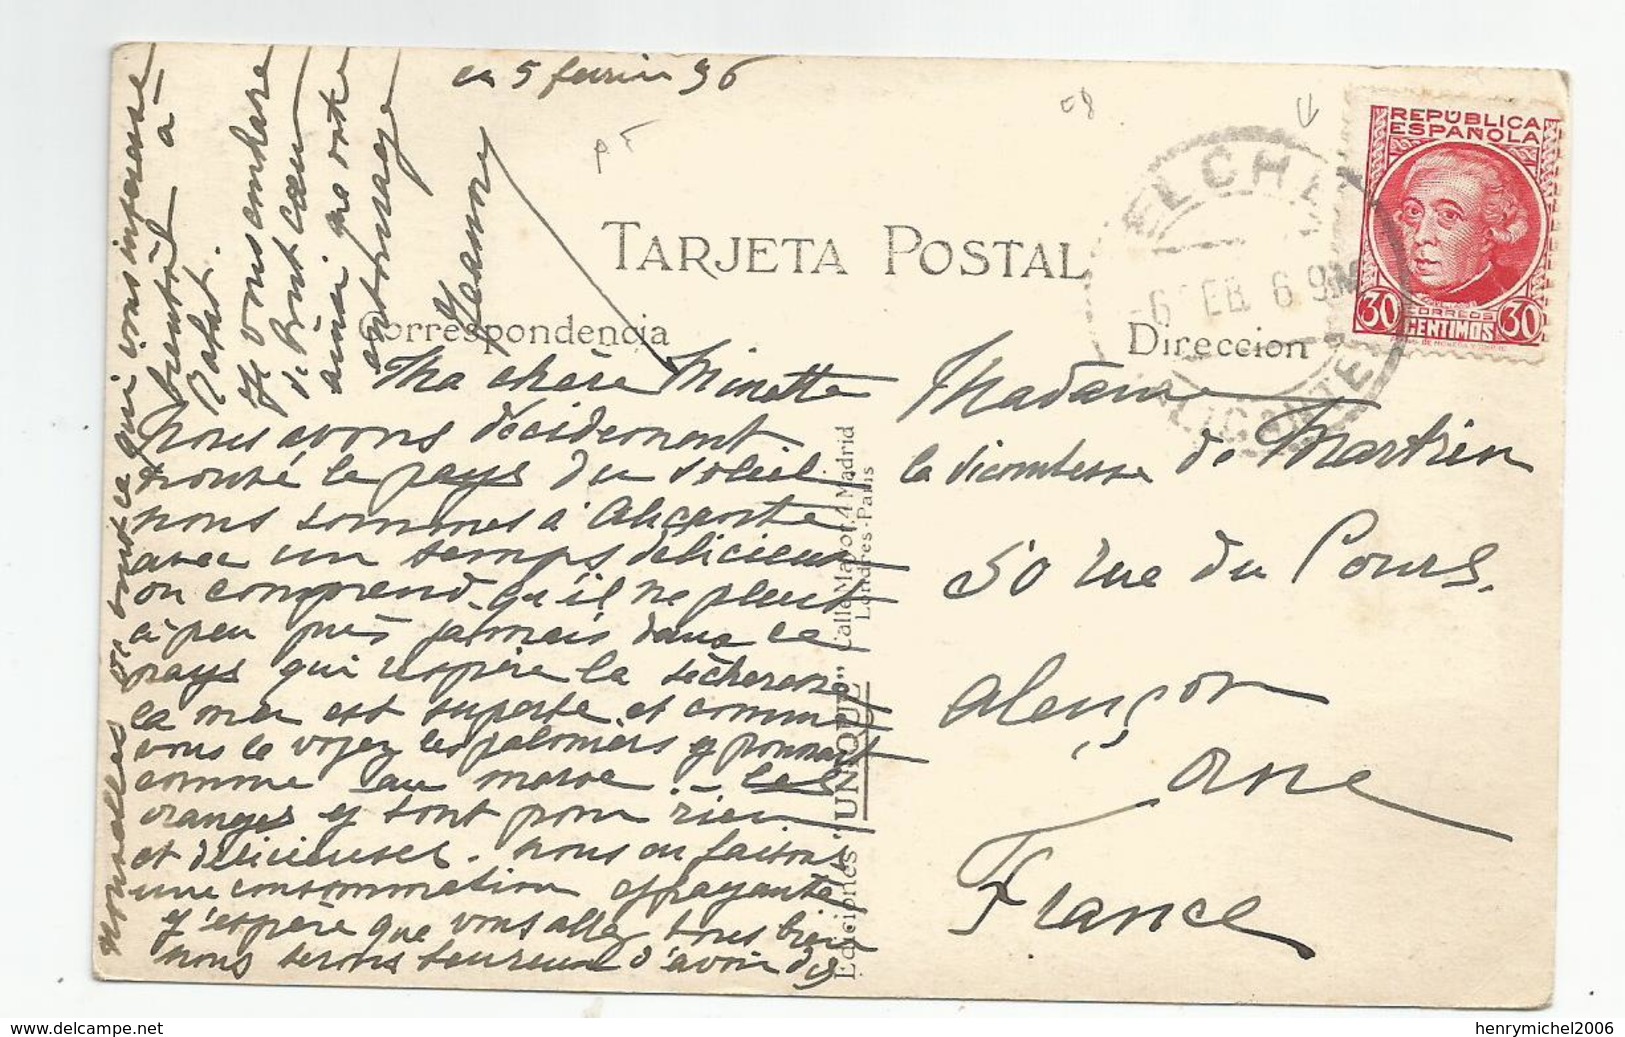 ce 5 février 36
TARJETA POSTAL
Correspondencia
Direccion
REPÚBLICA
ESPAÑOLA
30 CORREOS 30
CENTIMOS
ELCHE
6 FEB 6 9M
ALICANTE
Ma chère Minette
nous avons décidement
trouvé le pays du soleil
nous sommes à Alicante
avec un temps délicieux
on comprend qu'il ne pleut
à peu près jamais dans ce
pays qui respire la sècheresse
la mer est superbe et comme
vous le voyez les palmiers y poussent
comme au maroc - les
oranges y sont pour rien
et délicieuses. nous en faisons
une consommation effrayante
J'espère que vous allez tous bien
nous serons heureux d'avoir des
nouvelles de tout ce qui vous intéresse
bientôt à
Rabat.
Je vous embrasse
de tout cœur
ainsi que votre
entourage
Madame
la Vicomtesse de
50 rue du Cours.
Alençon
Orne
France
Ediciones "UNIQUE" Calle Mayor, 4 Madrid
Londres-Paris
www.delcampe.net
henrymichel2006